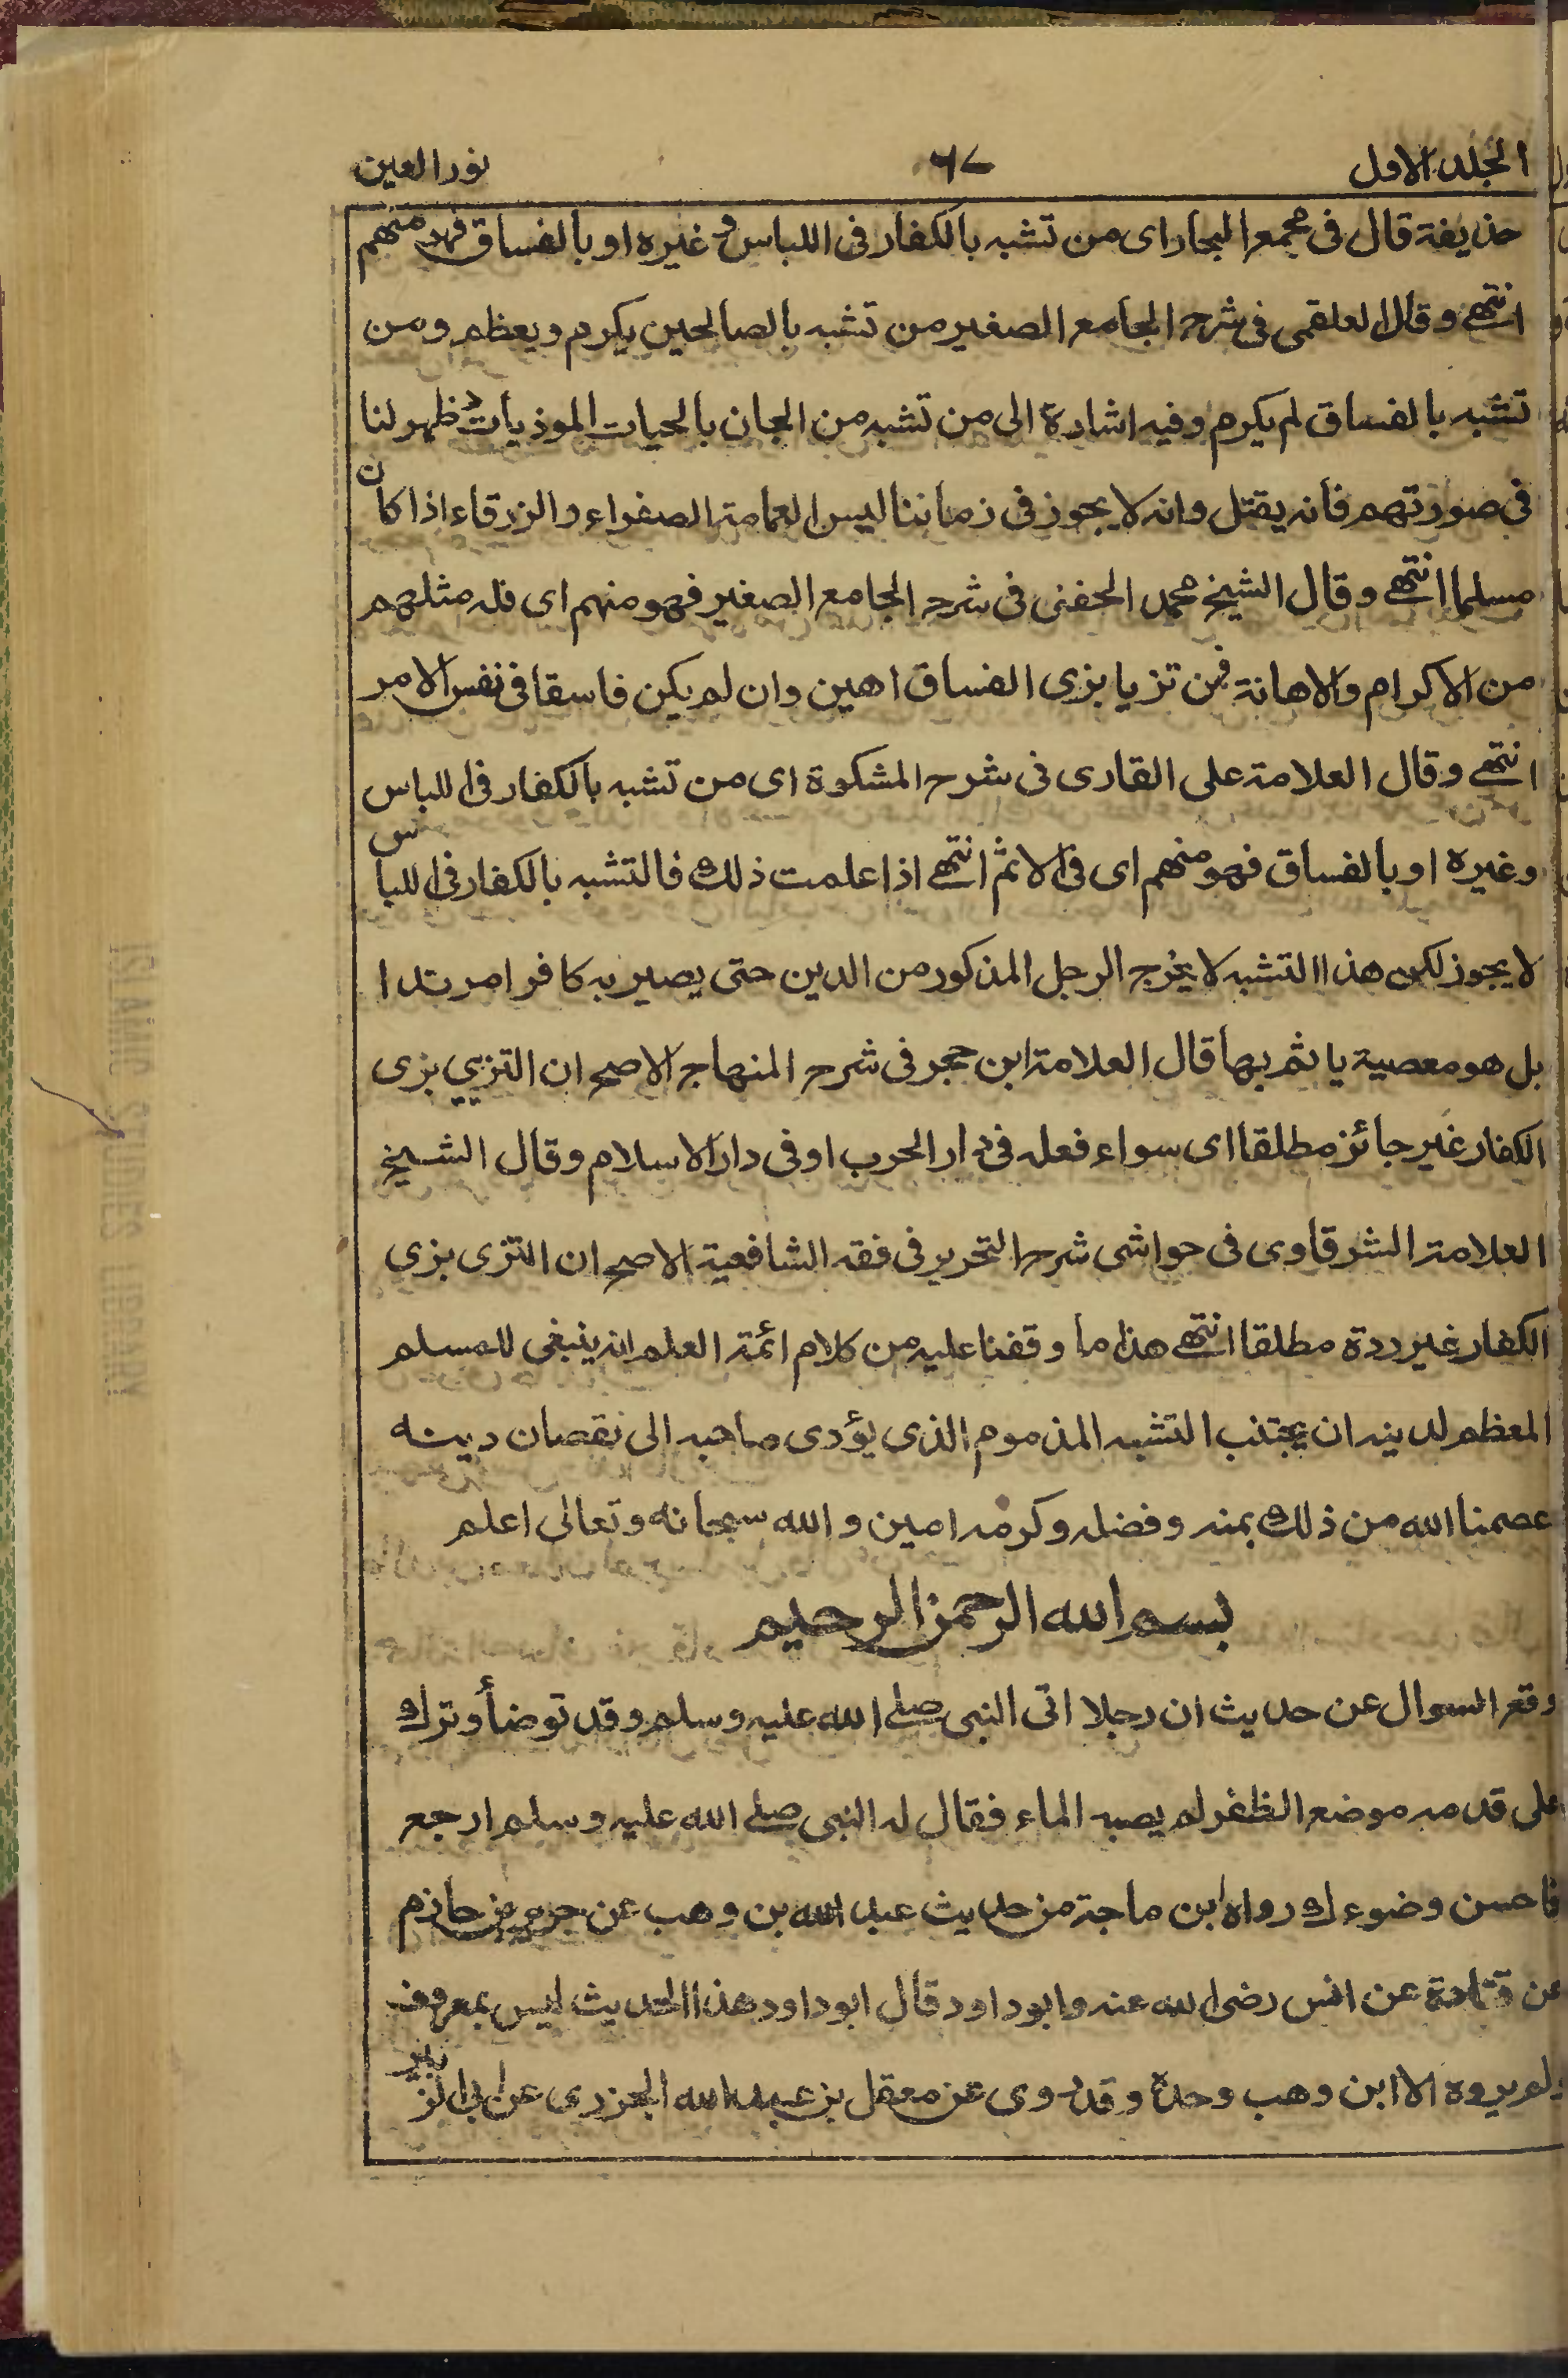 الجلد الاول ٦٧ نور العين
حذيفة قال فى مجمع البحار اى من تشبه بالكفار فى اللباس و غيره او بالفساق فهو منهم
انتهے وقال العلقمى فى شرح الجامع الصغير من تشبه بالصالحين يكرم ويعظم ومن
تشبه بالفساق لم يكرم وفيه اشارة الى من تشبه من الجان بالحيات الموذيات و ظهر لنا
فى صورتهم فانه يقتل وانه لا يجوز فى زماننا لبس العمامة الصفراء والزرقاء اذا كان
مسلما انتهے وقال الشيخ محمد الحفنى فى شرح الجامع الصغير فهو منهم اى فله مثلهم
من الاكرام والاهانة فمن تزيا بزى الفساق اهين وان لم يكن فاسقا فى نفس الامر
انتهے وقال العلامة على القارى فى شرح المشكوة اى من تشبه بالكفار فى اللباس
وغيره او بالفساق فهو منهم اى فى الاثم انتهے اذا علمت ذلك فالتشبه بالكفار فى اللباس
لا يجوز لكن هذا التشبه لا يخرج الرجل المذكور من الدين حتى يصير به كافرا مرتدا
بل هو معصية ياثم بها قال العلامة ابن حجر فى شرح المنهاج الاصح ان التزيي بزى
الكفار غير جائز مطلقا اى سواء فعله فى دار الحرب او فى دار الاسلام وقال الشيخ
العلامة الشرقاوى فى حواشى شرح التحرير فى فقه الشافعية الاصح ان التزى بزى
الكفار غير ردة مطلقا انتهے هذا ما وقفنا عليه من كلام ائمة العلم انه ينبغى للمسلم
المعظم لدينه ان يجتنب التشبه المذموم الذى يؤدى صاحبه الى نقصان دينه
عصمنا الله من ذلك بمنه وفضله وكرمه امين و الله سبحانه وتعالى اعلم
بسم الله الرحمن الرحيم
وقع السوال عن حديث ان رجلا اتى النبى صلے الله عليه وسلم وقد توضأ وترك
على قدمه موضع الظفر لم يصبه الماء فقال له النبى صلے الله عليه وسلم ارجع
فاحسن وضوءك رواه ابن ماجة من حديث عبد الله بن وهب عن جرير بن حازم
عن قتادة عن انس رضى الله عنه وابو داود قال ابو داود هذا الحديث ليس بمعروف
ولم يروه الا ابن وهب وحده وقد روى عن معقل بن عبيد الله الجزرى عن ابى الزبير